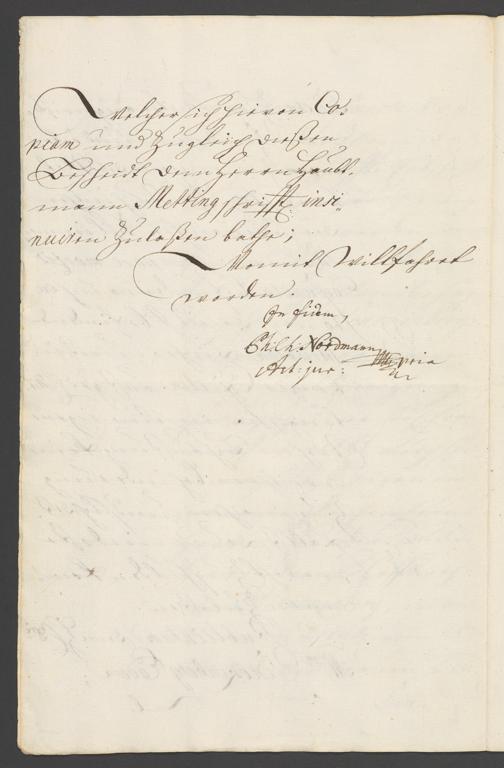 Welcher sich hievon Co-
piam und zugleich diesen
Bescheidt dem Herrn Haubt-
mann Metting schrifftl: insi-
nuiren zulaßen bathe;
Womit Willfahret
worden.
In fidem,
Ch: Ch: Nordmann
Act: jur: mppria